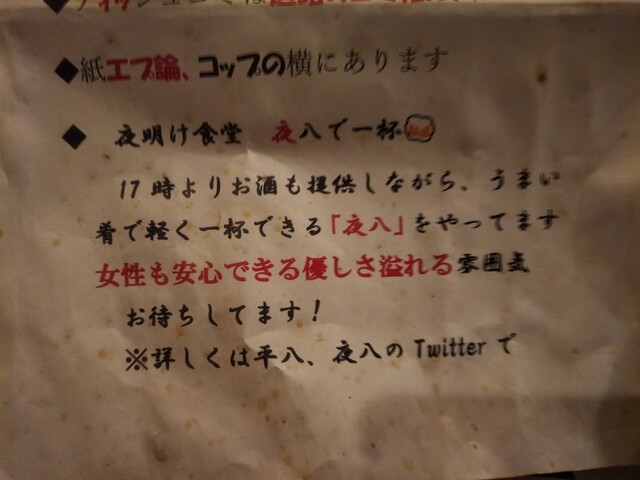 ◆紙エプ論、コップの横にあります
◆ 夜明け食堂 夜八で一杯
17時よりお酒も提供しながら、うまい
肴で軽く一杯できる「夜八」をやってます
女性も安心できる優しさ溢れる雰囲気
お待ちしてます!
※詳しくは平八、夜八のTwitterで